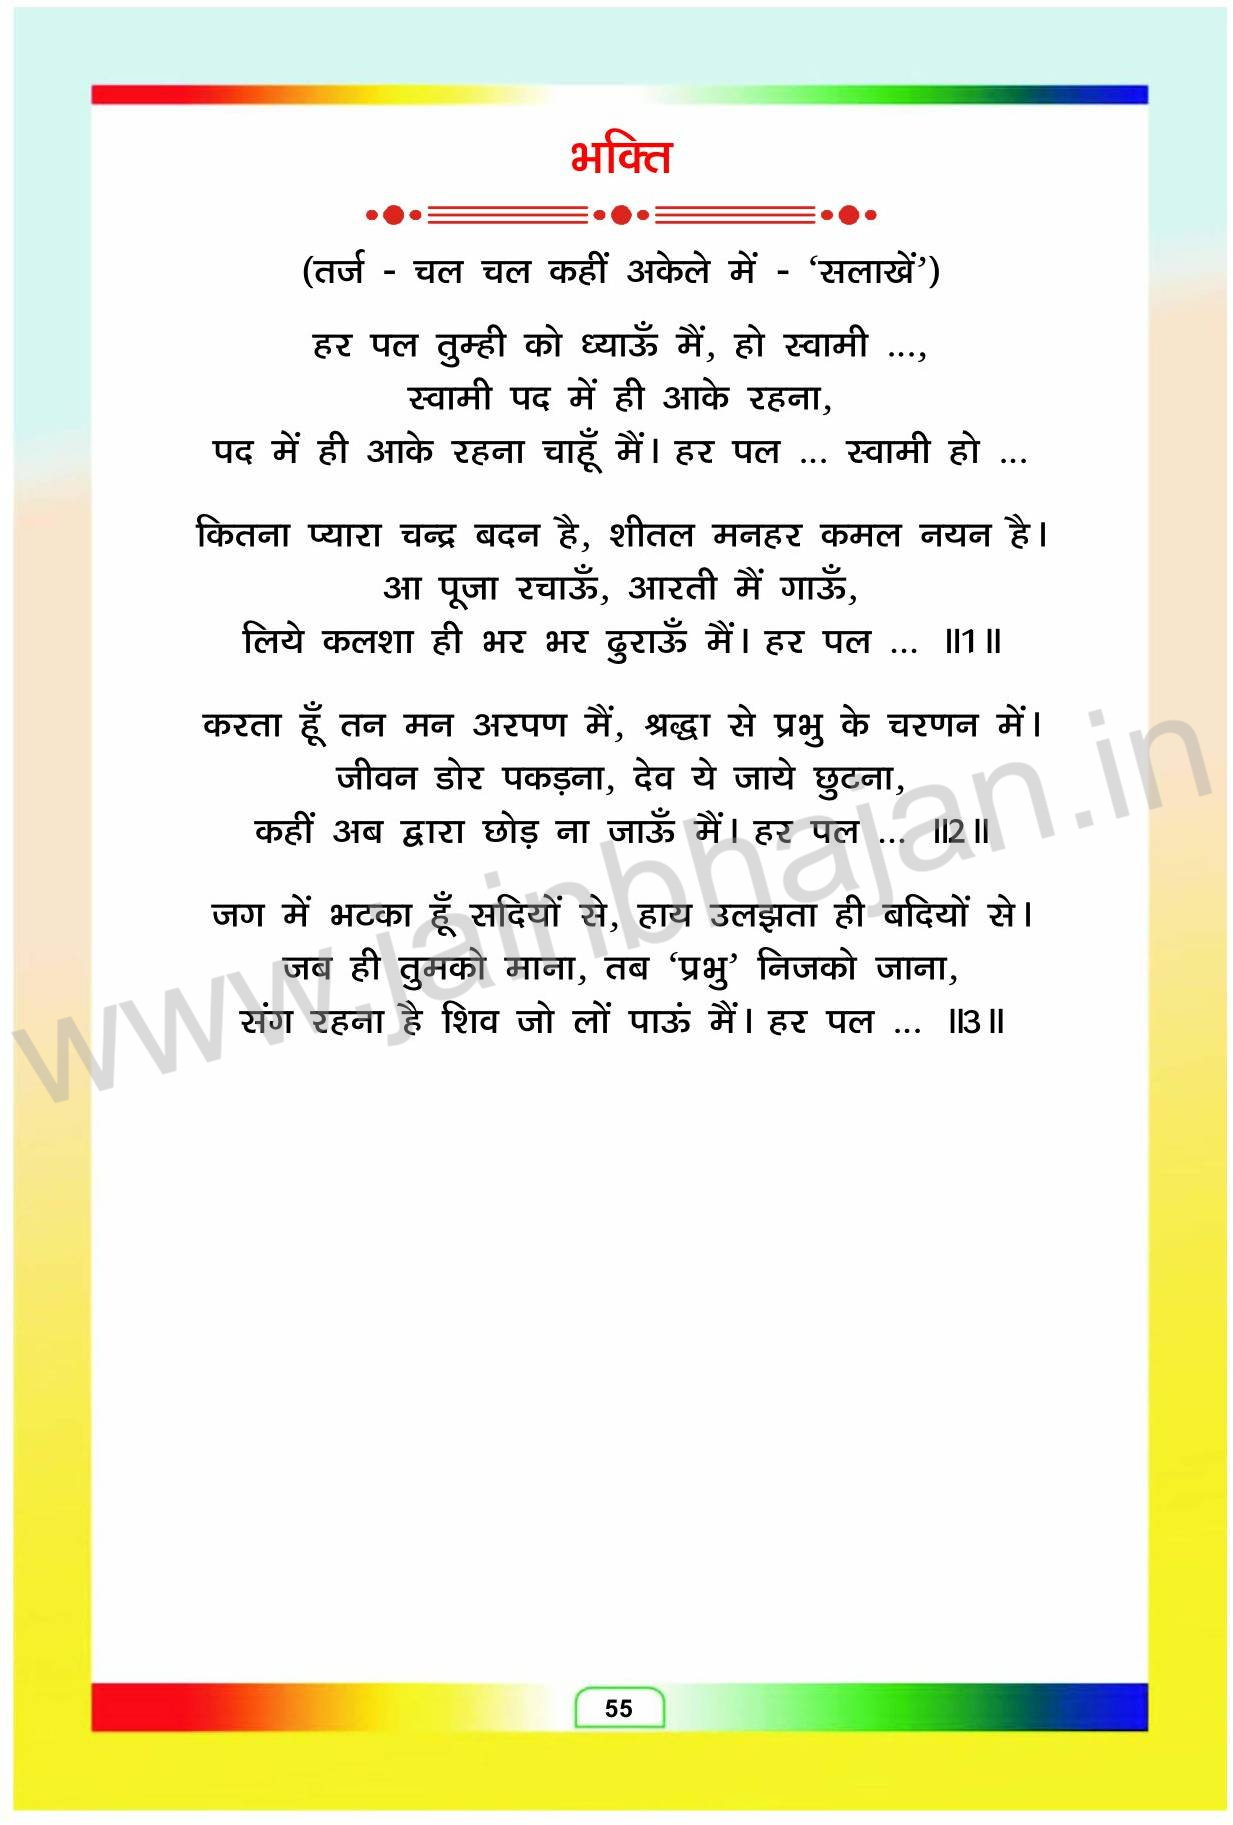 भक्ति
(तर्ज - चल चल कहीं अकेले में - ‘सलाखें’)
हर पल तुम्ही को ध्याऊँ मैं, हो स्वामी ...,
स्वामी पद में ही आके रहना,
पद में ही आके रहना चाहूँ मैं। हर पल ... स्वामी हो ...
कितना प्यारा चन्द्र बदन है, शीतल मनहर कमल नयन है।
आ पूजा रचाऊँ, आरती मैं गाऊँ,
लिये कलशा ही भर भर ढुराऊँ मैं। हर पल ... ॥1॥
करता हूँ तन मन अरपण मैं, श्रद्धा से प्रभु के चरणन में।
जीवन डोर पकड़ना, देव ये जाये छुटना,
कहीं अब द्वारा छोड़ ना जाऊँ मैं। हर पल ... ॥2॥
जग में भटका हूँ सदियों से, हाय उलझता ही बदियों से।
जब ही तुमको माना, तब ‘प्रभु’ निजको जाना,
संग रहना है शिव जो लों पाऊं मैं। हर पल ... ॥3॥
www.jainbhajan.in
55